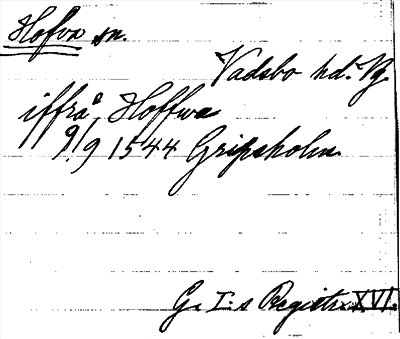 Hofva sn.
Vadsbo hd. Vg.
iffrå Hoffwa
9/9 1544 Gripsholm
G. I:s Registr. XVI.